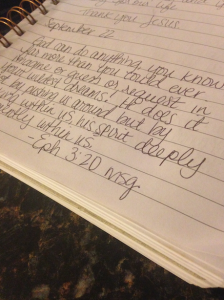 life
thank you Jesus
September 22
God can do anything, you know
far more than you could ever
imagine or guess or request in
your wildest dreams! He does it
by pushing us around but by
within us, his spirit deeply
within us.
Eph 3:20 msg